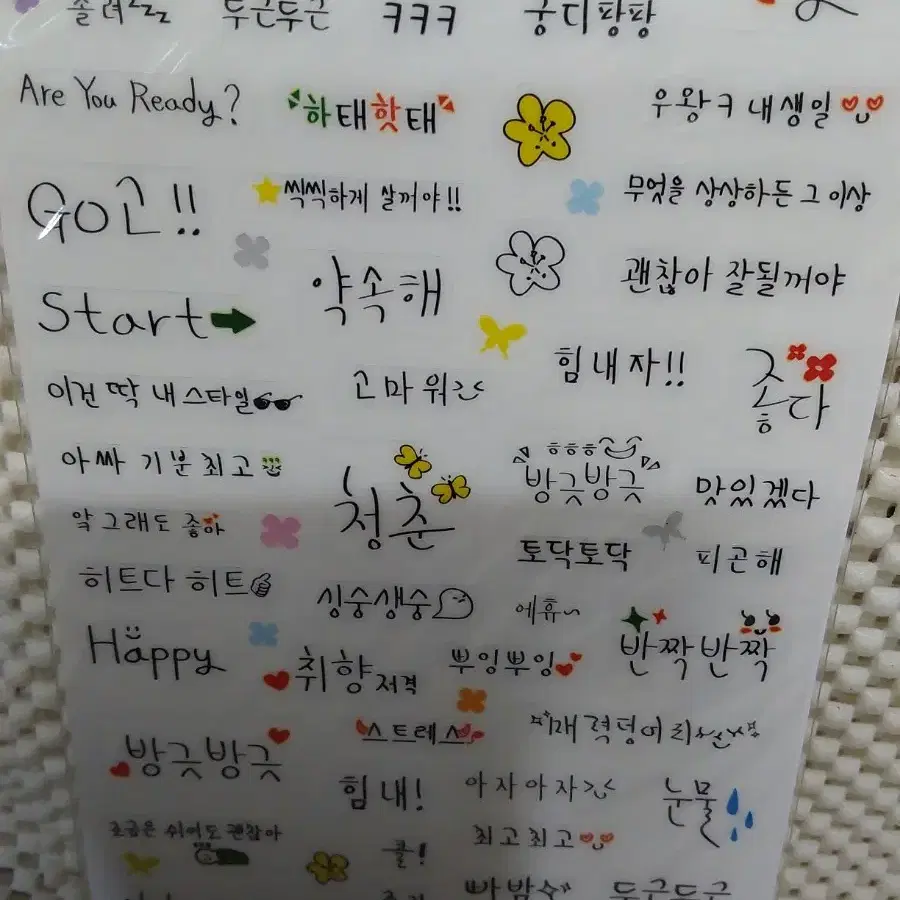 졸려zzz 두근두근 ㅋㅋㅋ 궁디팡팡
Are You Ready? 하태핫태 우왕ㅋ 내생일
GO고!! 씩씩하게 살꺼야!! 무엇을 상상하든 그 이상
약속해 괜찮아 잘될꺼야
Start
힘내자!! 좋다
이건 딱 내스타일 고마워
아싸 기분최고 청춘 ㅎㅎㅎ
방긋방긋 맛있겠다
앜 그래도 좋아 토닥토닥 피곤해
히트다 히트 싱숭생숭 에휴~
Happy 취향저격 뿌잉뿌잉 반짝반짝
방긋방긋 스트레스 매력덩어리
힘내! 아자아자 눈물
조금은 쉬어도 괜찮아 콜! 최고최고
빠밤 두근두근